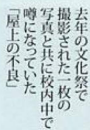 去年の文化祭で
撮影された一枚の
写真と共に校内中で
噂になっていた
「屋上の不良」